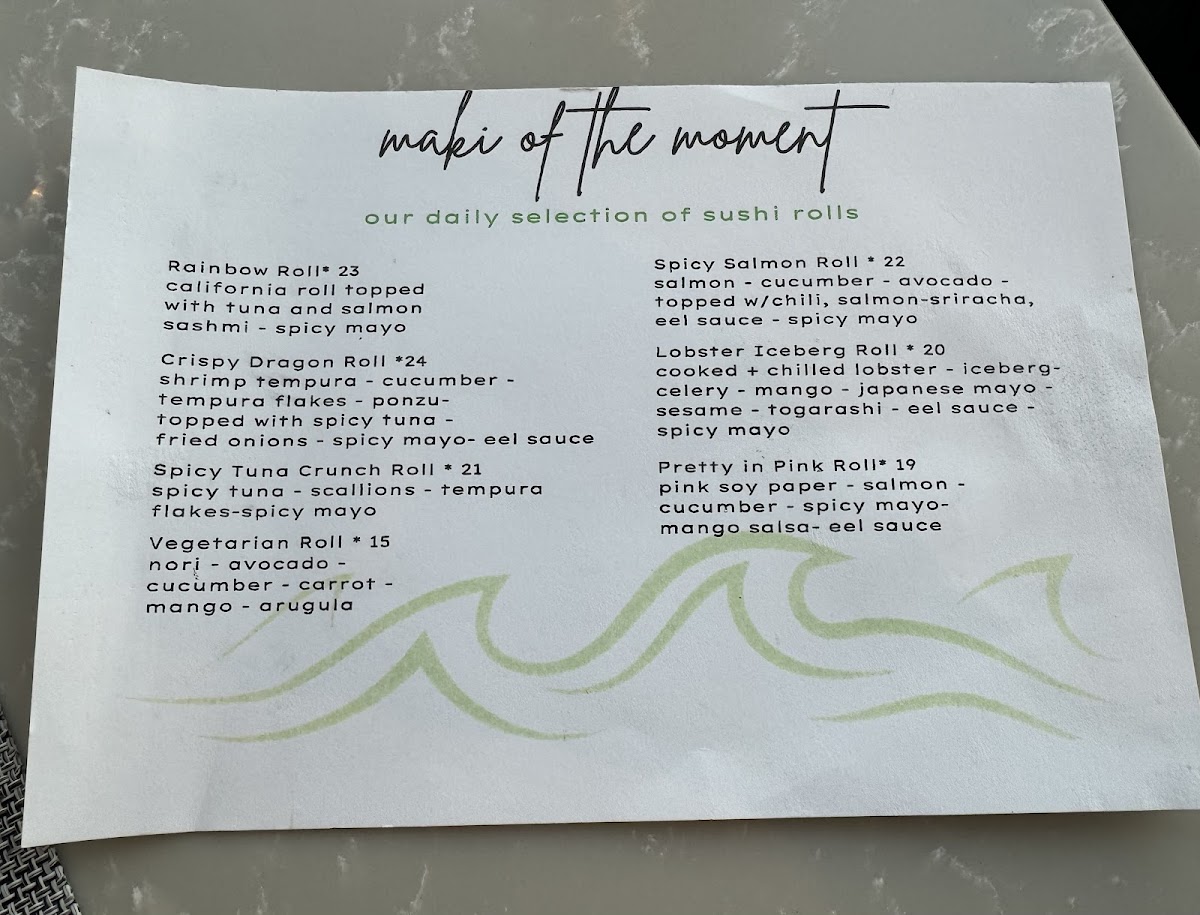 maki of the moment
our daily selection of sushi rolls
Rainbow Roll* 23
california roll topped
with tuna and salmon
sashmi - spicy mayo
Crispy Dragon Roll *24
shrimp tempura - cucumber -
tempura flakes - ponzu-
topped with spicy tuna -
fried onions - spicy mayo- eel sauce
Spicy Tuna Crunch Roll * 21
spicy tuna - scallions - tempura
flakes-spicy mayo
Vegetarian Roll * 15
nori - avocado -
cucumber - carrot -
mango - arugula
Spicy Salmon Roll * 22
salmon - cucumber - avocado -
topped w/chili, salmon-sriracha,
eel sauce - spicy mayo
Lobster Iceberg Roll * 20
cooked + chilled lobster - iceberg-
celery - mango - japanese mayo -
sesame - togarashi - eel sauce -
spicy mayo
Pretty in Pink Roll* 19
pink soy paper - salmon -
cucumber - spicy mayo-
mango salsa- eel sauce